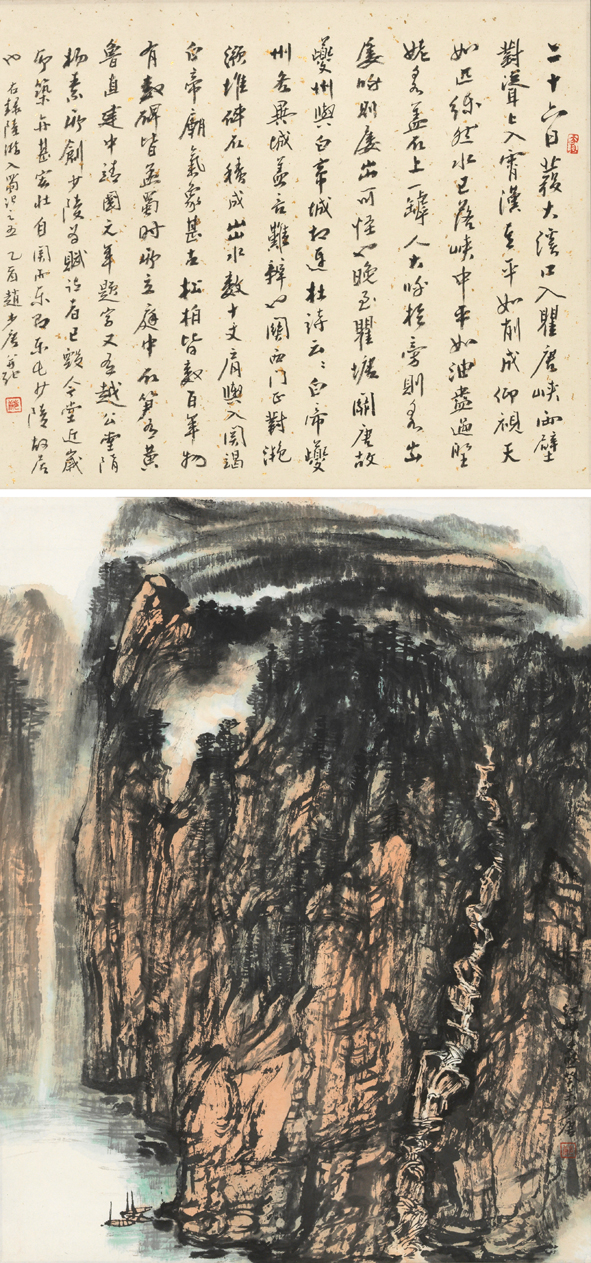 二十六日發大溪口入瞿唐峽兩壁
對聳上入霄漢其平如削成仰視天
如匹練然水已落峽中平如油盎過聖
姥泉蓋石上一罅人大呼於旁則泉出
屢呼則屢出可怪也晚至瞿塘關唐故
夔州與白帝城相連杜詩云々白帝夔
州各異城蓋言難辨也關西門正對灧
澦堆碎石積成出水數十丈肩輿入關謁
白帝廟氣象甚古松柏皆數百年物
有數碑皆孟蜀時所立庭中石筍有黃
魯直建中靖國元年題字又有越公堂隋
楊素所創少陵為賦詩者已毀今堂近歲
所築亦甚宏壯自關而東即東屯少陵故居
也 右錄陸游入蜀記之五 乙酉趙少